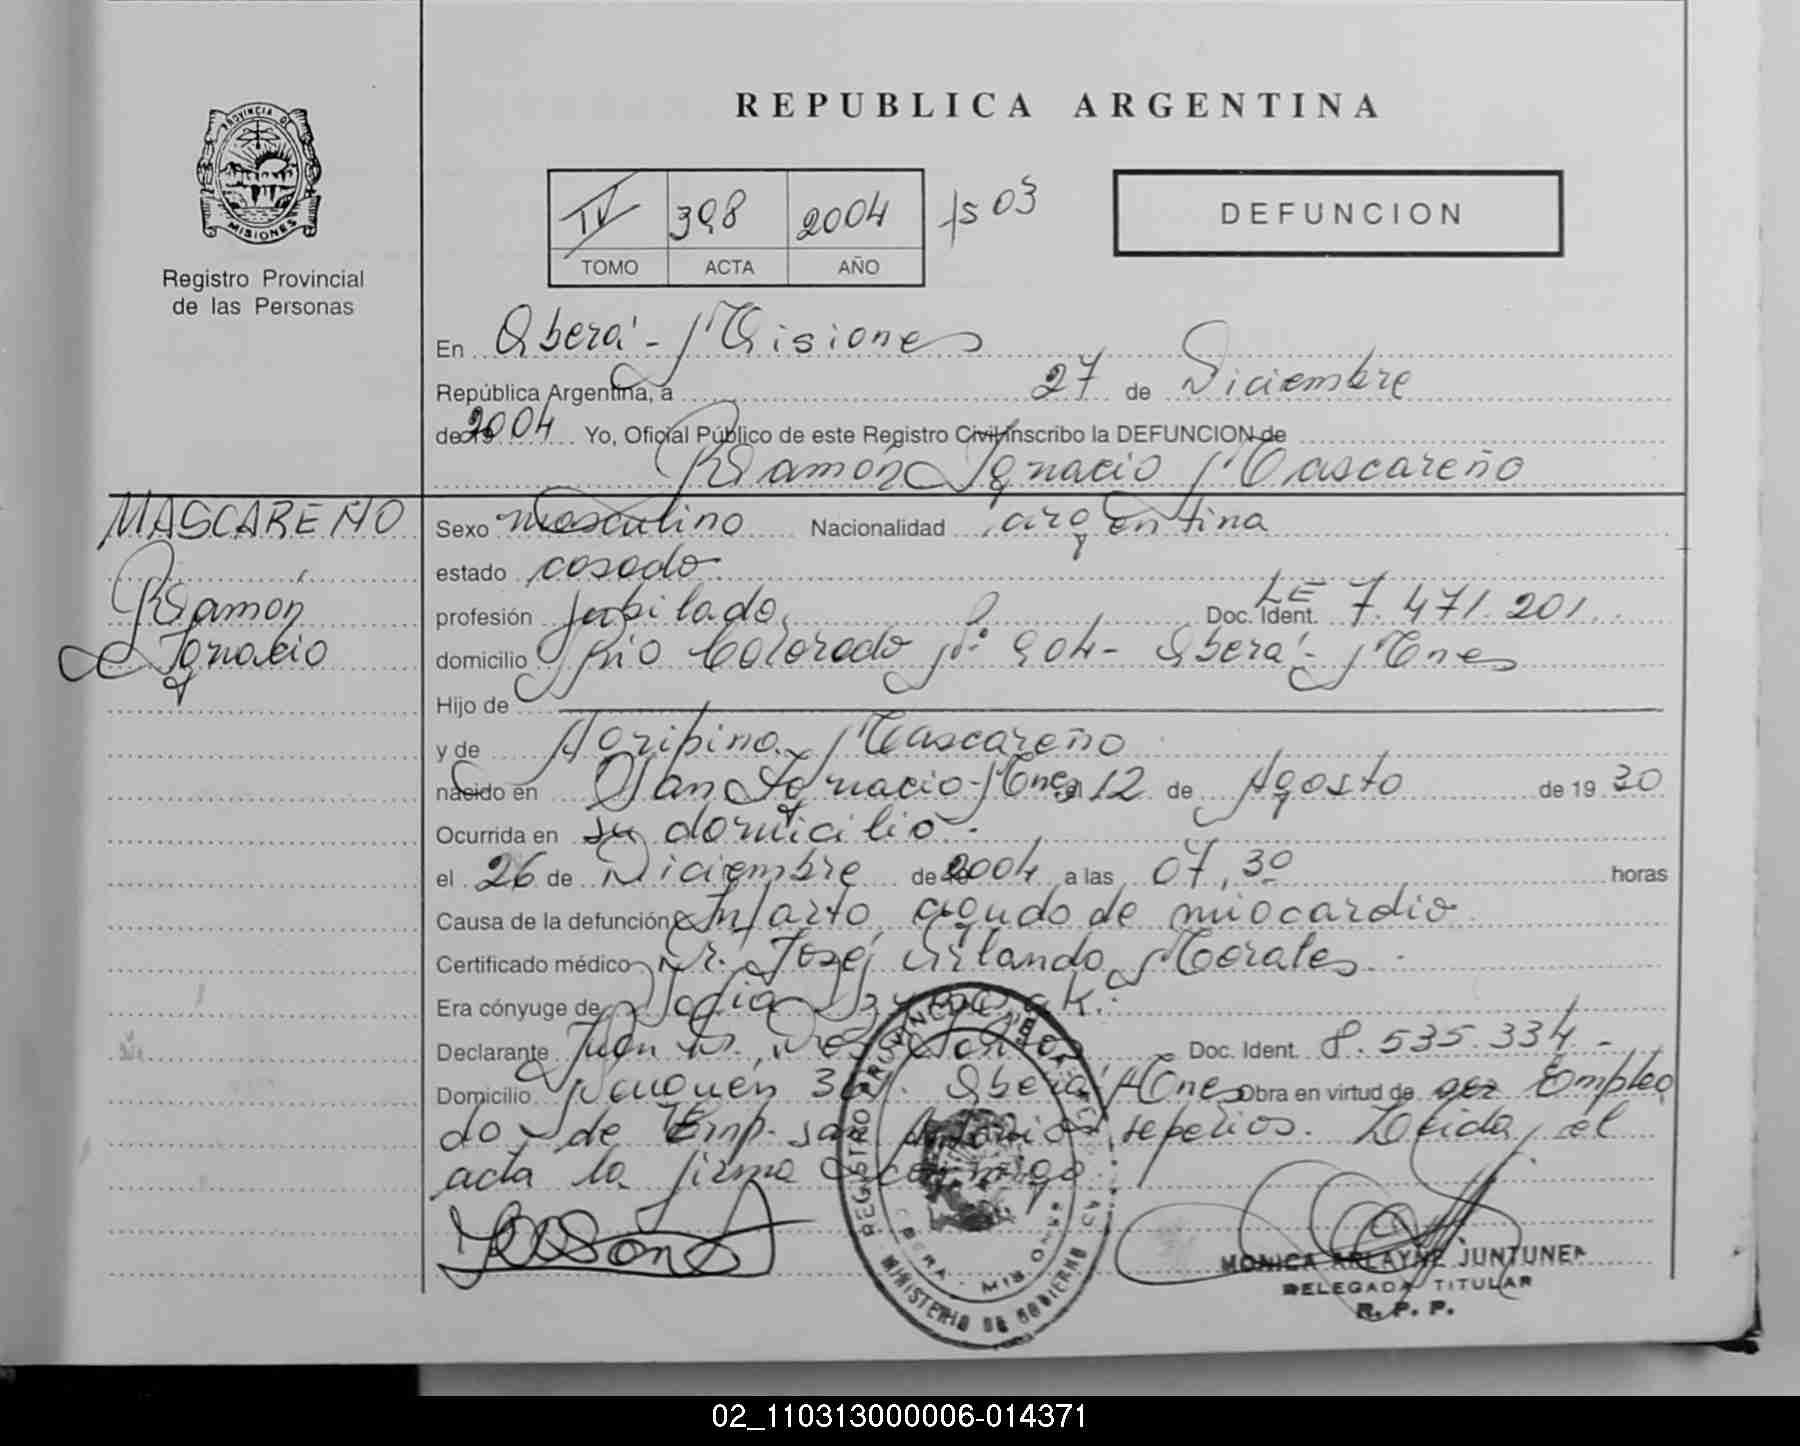 PROVINCIA DE
MISIONES
Registro Provincial
de las Personas
REPUBLICA ARGENTINA
IV 398 2004 fs 03
TOMO ACTA AÑO
DEFUNCION
En Oberá - Misiones
República Argentina, a 27 de Diciembre
de 2004 Yo, Oficial Público de este Registro Civil inscribo la DEFUNCION de
Ramón Ignacio Mascareño
MASCAREÑO
Ramón
Ignacio
Sexo masculino Nacionalidad argentina
estado casado
profesión Jubilado Doc. Ident. LE 7.471.201
domicilio Río Colorado Nº 904 - Oberá - Mnes
Hijo de
y de Agripina Mascareño
nacido en San Ignacio - Mnes 12 de Agosto de 1930
Ocurrida en su domicilio.
el 26 de Diciembre de 2004 a las 07,30 horas
Causa de la defunción Infarto agudo de miocardio
Certificado médico Dr. José Orlando Morales
Era cónyuge de Sofia
Declarante Juan Dos Santos Doc. Ident. 8.535.334 -
Domicilio Oberá Mnes Obra en virtud de ser Emplea
do de Emp. san Antonio sepelios. Leida el
acta la firma conmigo
REGISTRO PROVINCIAL DE LAS PERSONAS
OBERA - MISIONES
MINISTERIO DE GOBIERNO
MONICA ARLAYNE JUNTUNEN
DELEGADA TITULAR
R. P. P.
02_110313000006-014371